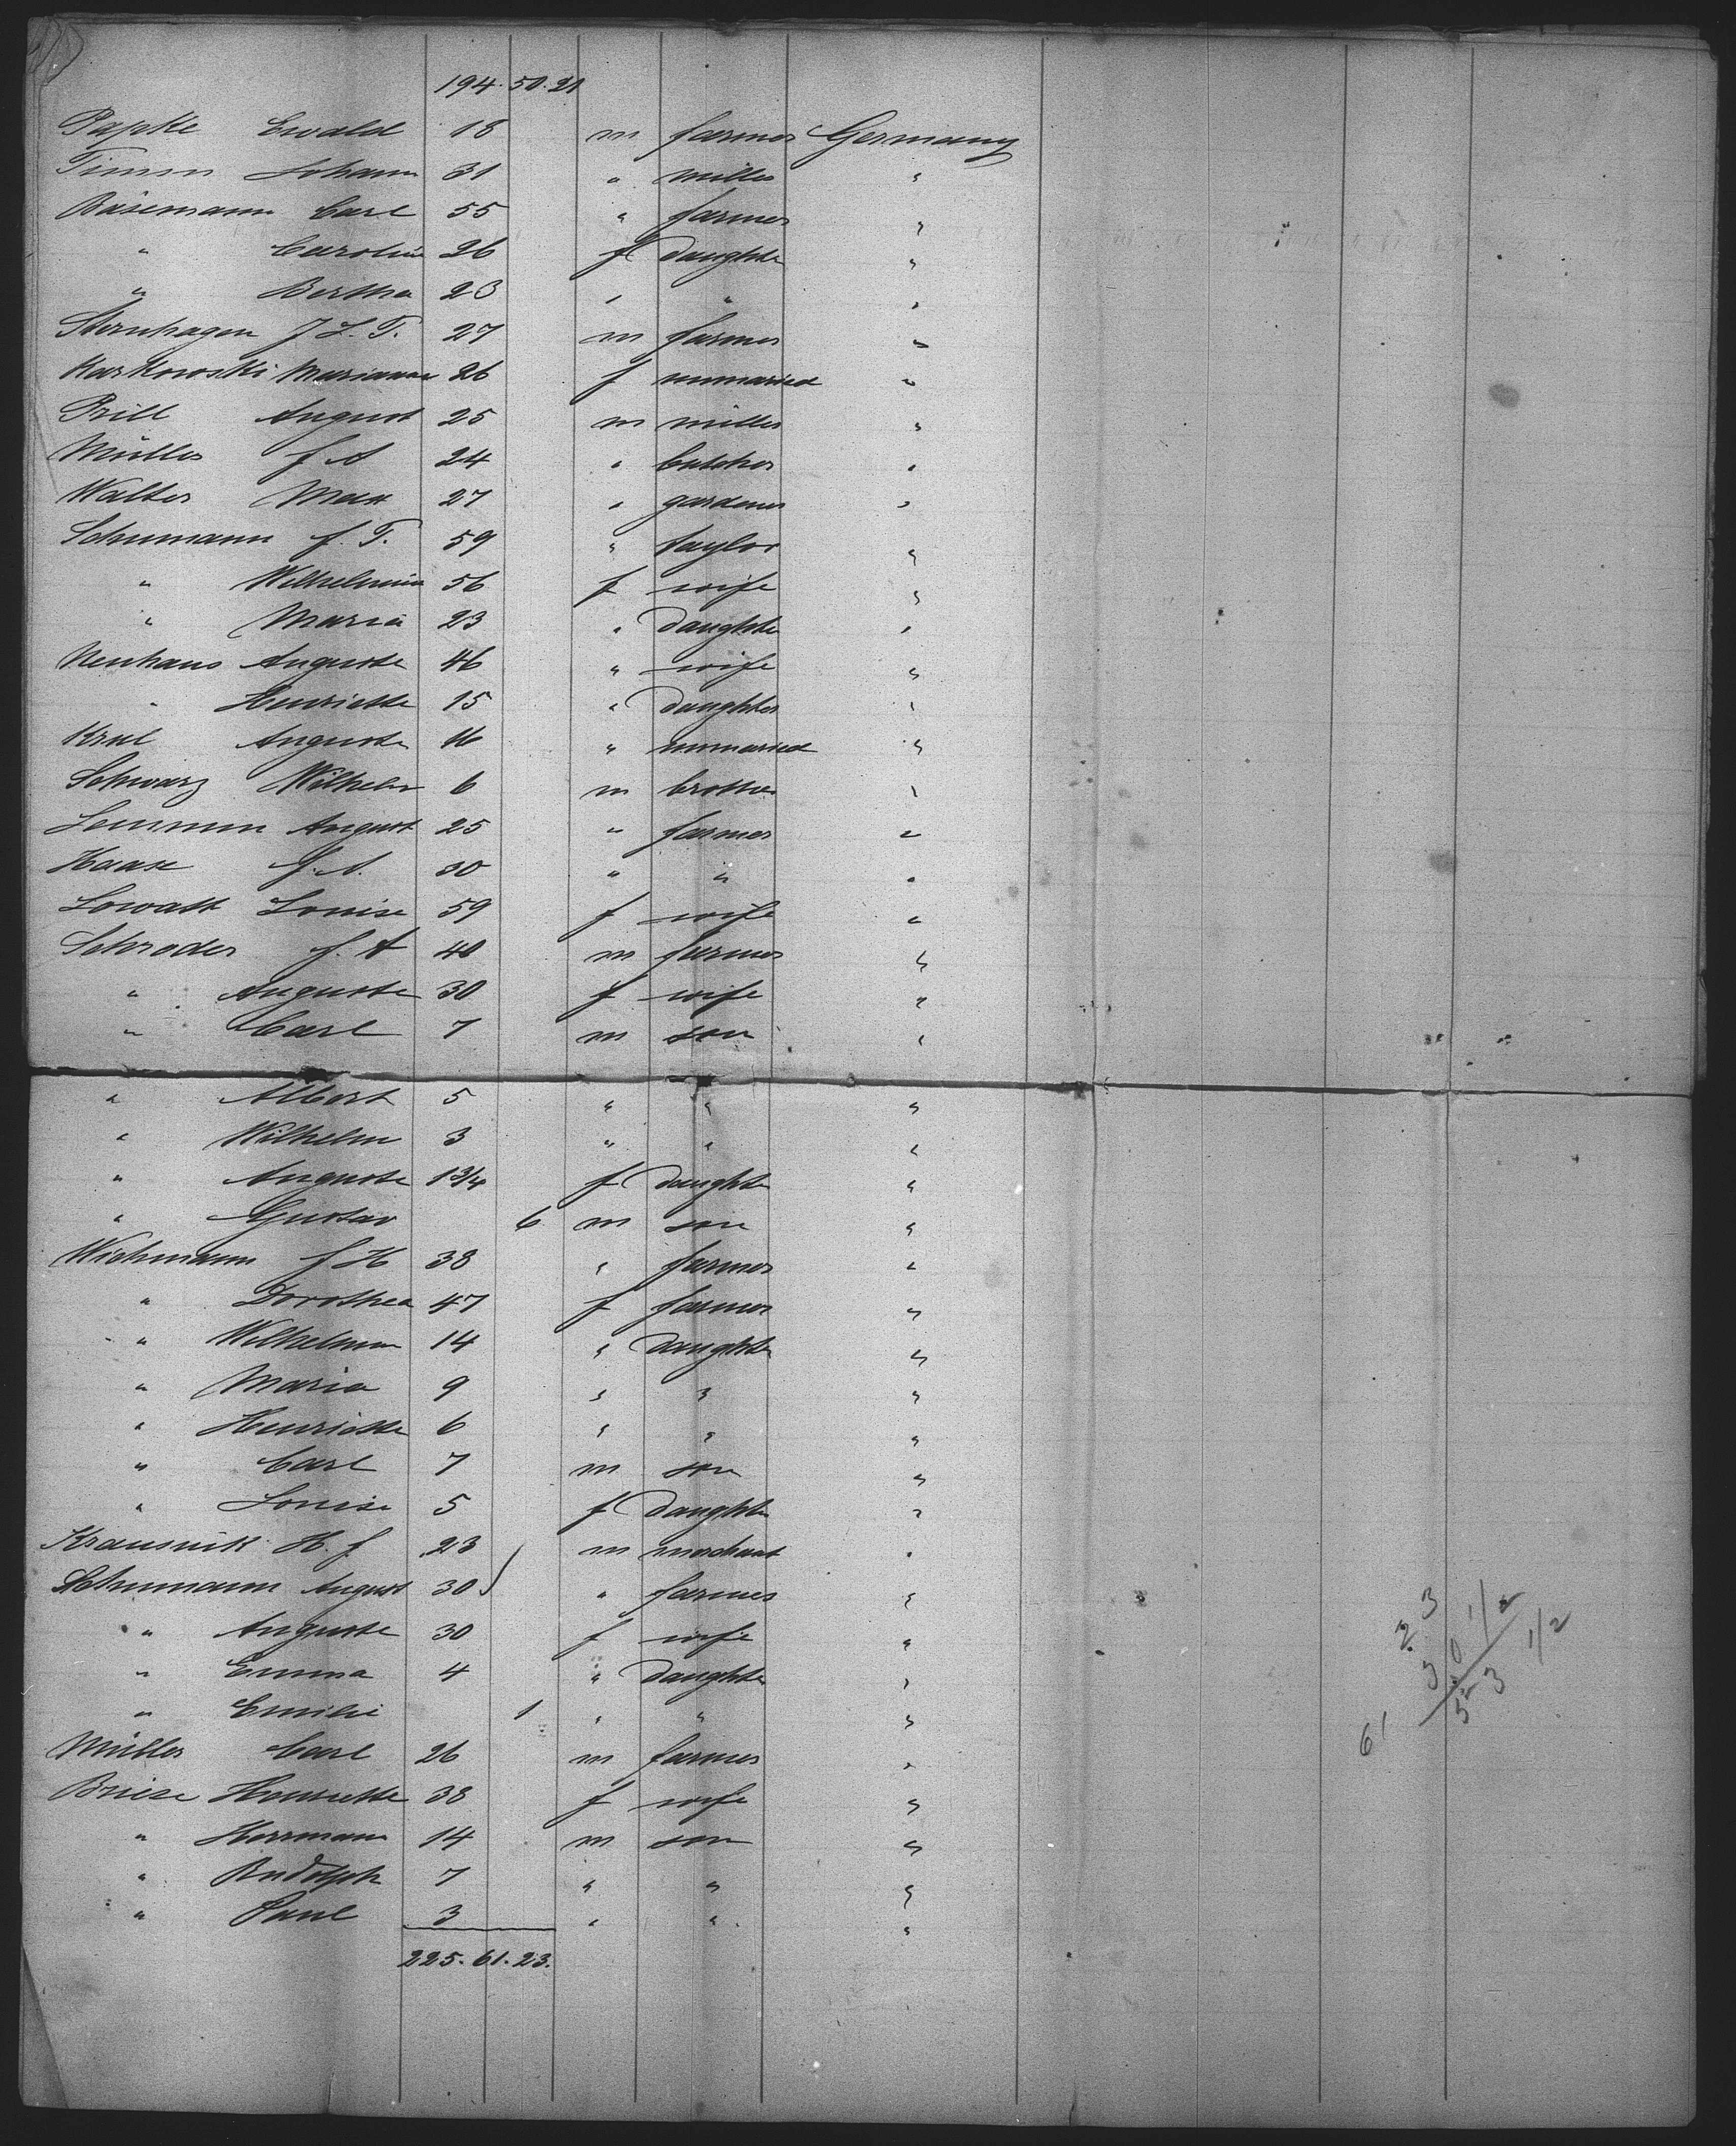 194. 50. 21
Papke Ewald 18 m farmer Germany
Timm Johann 31 " miller "
Büsemann Carl 55 " farmer "
" Carolin 26 f daughte "
" Bertha 23 " " "
Sternhagen J L. T. 27 m farmer "
Karkowski Marianne 26 f unmaried "
Prill August 25 m miller "
Müller J A 24 " butcher "
Walter Max 27 " gardener "
Schumann J. T. 59 " taylor "
" Wilhelmine 56 f wife "
" Maria 23 " daughte "
Neuhaus Auguste 46 " wife "
" Henriette 15 " daughter "
Krul Auguste 16 " unmaried "
Schwarz Wilhelm 6 m brother "
August 25 " farmer "
Haase J. A. 30 " " "
Lowatt Louise 59 f wife "
Schroder J. A 40 m farmer "
" Auguste 30 f wife "
" Carl 7 m son "
" Albert 5 " " "
" Wilhelm 3 " " "
" Auguste 1 3/4 f daughte "
" Gustav 6 m son "
Wichmann J H 38 " farmer "
" Dorothea 47 f farmer "
" Wilhelmine 14 " daughte "
" Maria 9 " " "
" Henriette 6 " " "
" Carl 7 m son "
" Louise 5 f daughte "
Krausnik H. J 23 m merchant "
Schumann August 30 " farmer "
" Auguste 30 f wife "
" Emma 4 " daughte "
" Emilie 1 " " "
Müller Carl 26 m farmer "
Briese Henriette 38 f wife "
" Herrmann 14 m son "
" Rudolph 7 " " "
" Paul 3 " " "
225. 61. 23.
23
30 1/2
53 1/2
61